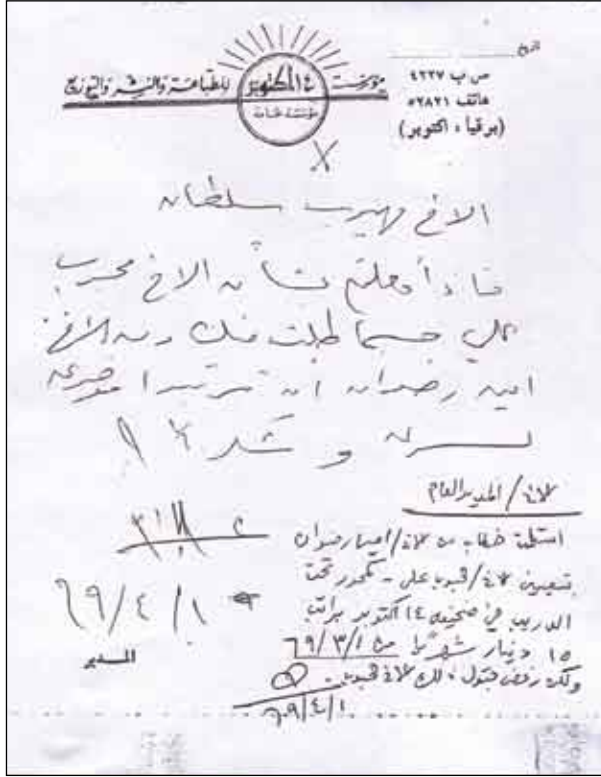 مؤسسة ١٤ اكتوبر للطباعة والنشر والتوزيع
مؤسسة عامة
ص ب ٤٢٢٧
هاتف ٥٢٨٢١
(برقيا ، اكتوبر)
الاخ سلطان
ماذا فعلتم بشأن الاخ
علي حسبما طلبت منك ومن الاخ
امين رضوان ان ترتبوا
وشكرا
الاخ / المدير العام
استلمت خطاب من الاخ / امين رضوان
تعيين الاخ / محبوب علي - كمحرر تحت
التدريب في صحيفة ١٤ اكتوبر براتب
١٥ دينار شهريا من ٦٩/٣/١
ولكن رفض قبول ذلك الاخ محبوب.
٦٩/٤/١
٦٩/٤/١
المدير